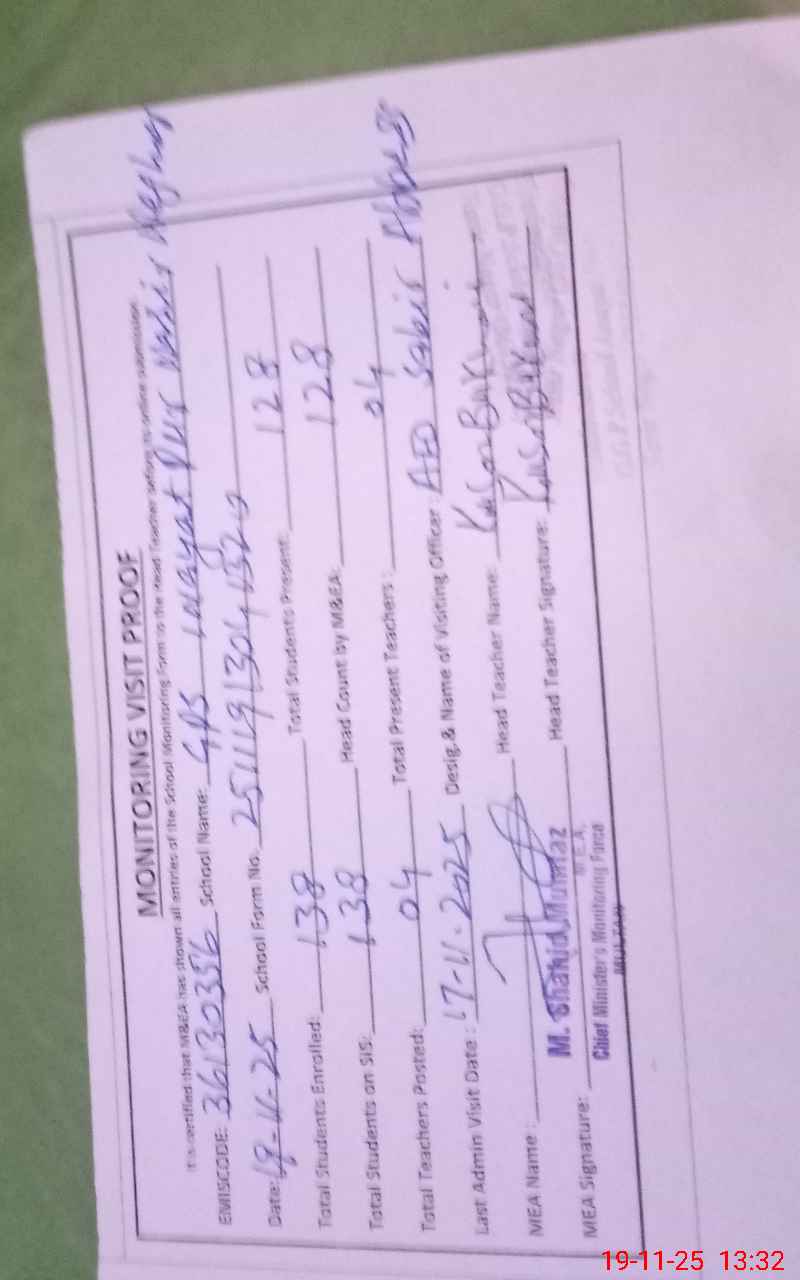 MONITORING VISIT PROOF
It is certified that M&EA has shown all entries of the School Monitoring Form to the Head Teacher before its online submission
EMISCODE: 36130356 School Name: GPS Inayat Pur
Date: 18-11-25 School Form No.
Total Students Enrolled: 138 Total Students Present: 128
Total Students on SIS: 138 Head Count by M&EA: 128
Total Teachers Posted: 04 Total Present Teachers: 04
Last Admin Visit Date: 17-11-2025 Desig.& Name of Visiting Officer: AEO Sabir Abbas
MEA Name: Head Teacher Name:
MEA Signature: Head Teacher Signature:
M. Shahid Mumtaz
M.E.A.
Chief Minister's Monitoring Force
MULTAN
19-11-25 13:32